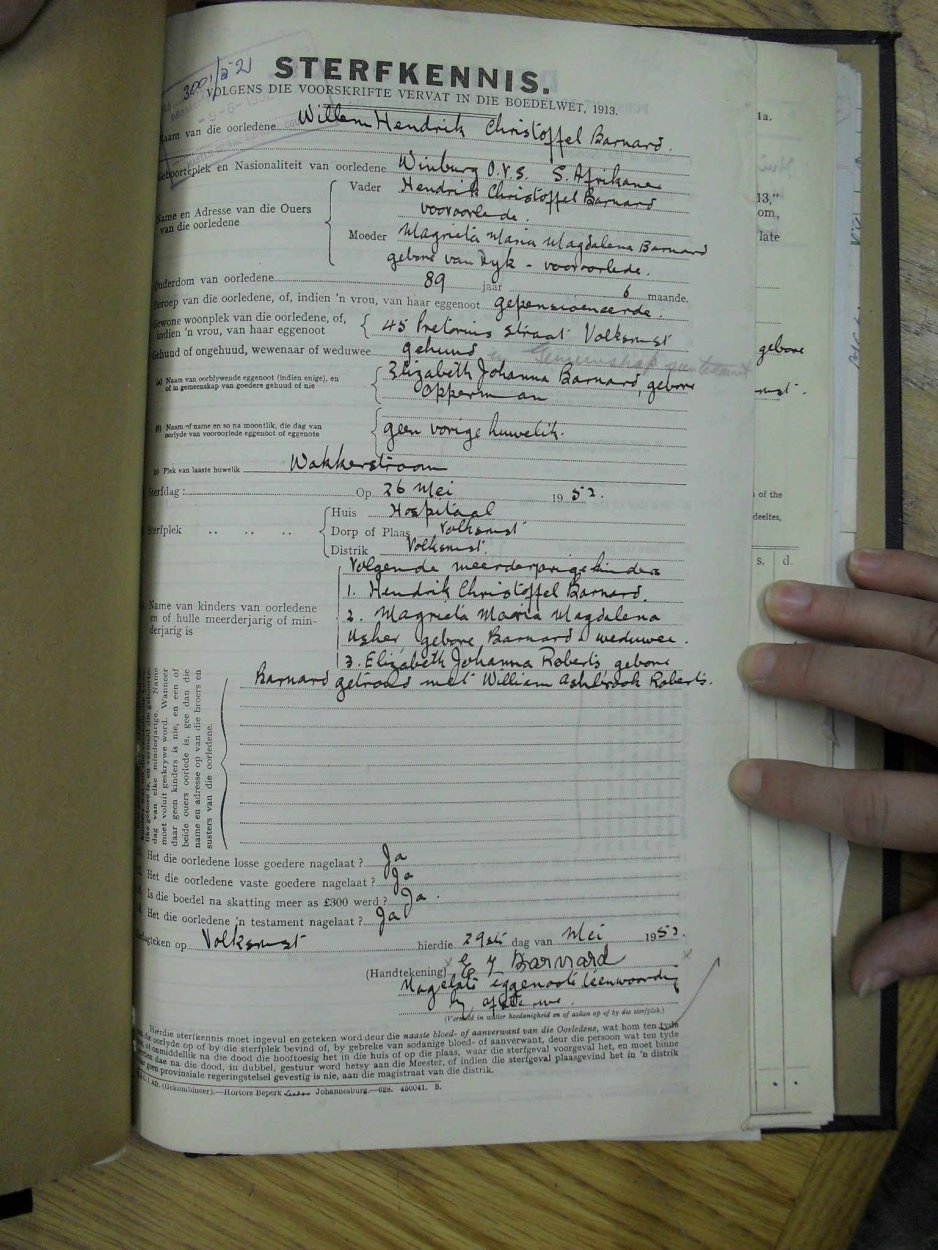 3001/52
STERFKENNIS.
VOLGENS DIE VOORSKRIFTE VERVAT IN DIE BOEDELWET, 1913.
Naam van die oorledene Willem Hendrik Christoffel Barnard.
Geboorteplek en Nasionaliteit van oorledene Winburg O.V.S. S. Afrikaner
Name en Adresse van die Ouers van die oorledene
Vader Hendrik Christoffel Barnard
vooroorlede.
Moeder Magrieta Maria Magdalena Barnard
gebore van Dyk - vooroorlede.
Ouderdom van oorledene 89 jaar 6 maande.
Beroep van die oorledene, of, indien 'n vrou, van haar eggenoot gepensioeneerde.
Gewone woonplek van die oorledene, of, indien 'n vrou, van haar eggenoot
45 Pretorius straat Volksrust
Gehuud of ongehuud, wewenaar of weduwee gehuud in gemeenskap
(a) Naam van oorblywende eggenoot (indien enige), en of in gemeenskap van goedere gehuud of nie
Elizabeth Johanna Barnard, gebore
Opperman
(b) Naam of name en so na moontlik, die dag van oorlyde van vooroorlede eggenoot of eggenote
geen vorige huwelik.
(c) Plek van laaste huwelik Wakkerstroom
Sterfdag: Op 26 Mei 1952.
Sterfplek
Huis Hospitaal
Dorp of Plaas Volksrust
Distrik Volksrust.
Name van kinders van oorledene en of hulle meerderjarig of minderjarig is
Volgende meerderjarige kinders
1. Hendrik Christoffel Barnard.
2. Magrieta Maria Magdalena
Usher gebore Barnard weduwee.
3. Elizabeth Johanna Roberts gebore
Barnard getroud met William Ashbrook Roberts.
dag van elke minderjarige. Name
moet voluit geskrywe word. Wanneer
daar geen kinders is nie, en een of
beide ouers oorlede is, gee dan die
name en adresse op van die broers en
susters van die oorledene.
Het die oorledene losse goedere nagelaat? Ja
Het die oorledene vaste goedere nagelaat? Ja
Is die boedel na skatting meer as £300 werd? Ja.
Het die oorledene 'n testament nagelaat? Ja
op Volksrust hierdie 29ste dag van Mei 1952.
(Handtekening) E J Barnard
Nagelate eggenoote teenwoordig
by afsterwe.
(Vermeld in watter hoedanigheid en of aldan op of by die sterfplek.)
Hierdie sterfkennis moet ingevul en geteken word deur die naaste bloed- of aanverwant van die Oorledene, wat hom ten tyde
oorlyde op of by die sterfplek bevind of, by gebreke van sodanige bloed- of aanverwant, deur die persoon wat ten tyde
onmiddellik na die dood die hooftoesig het in die huis of op die plaas, waar die sterfgeval voorgeval het, en moet binne
dae na die dood, in dubbel, gestuur word hetsy aan die Meester, of indien die sterfgeval plaasgevind het in 'n distrik
geen provinsiale regeringstelsel gevestig is nie, aan die magistraat van die distrik.
Afr. (Gekombineer).—Hortors Beperk Johannesburg.—628. 450041. S.
1a.
13,"
om,
late
gebore
of the
s. d.